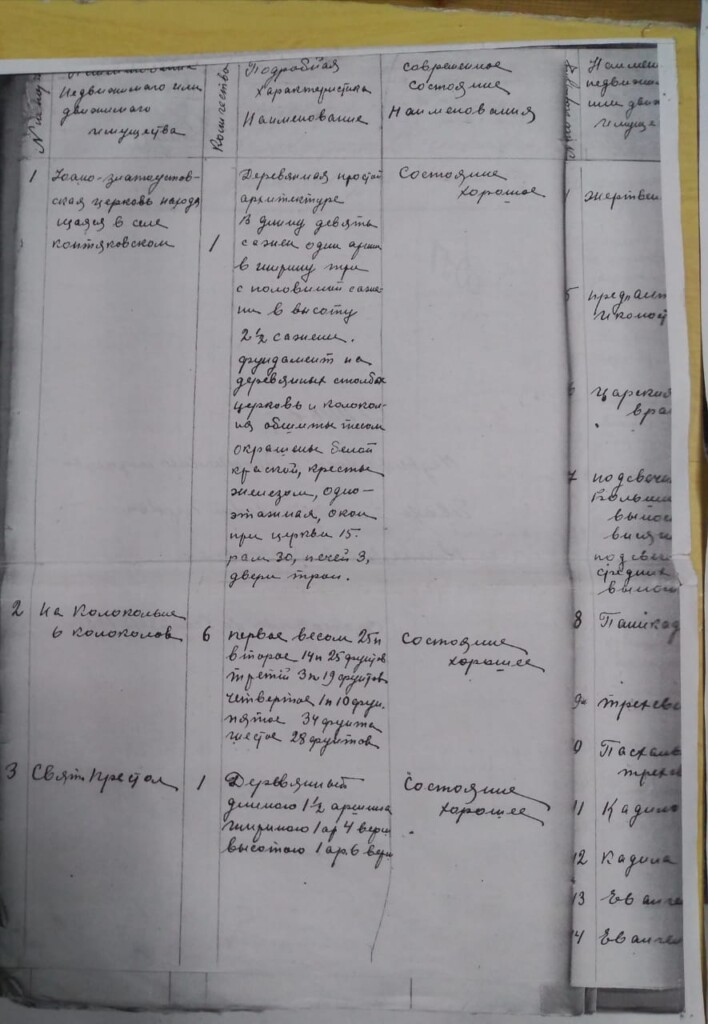 Недвижимого или
движимого
имущества
Количество
Подробная
характеристика
Наименование
современное
состояние
Наименования
Наимен
недвижи
или движ
имуще
1
Иоано-златоустов-
ская церковь находя
щаяся в селе
контяковском
1
Деревянная простой
архитектуре
В длину девять
сажен один арши
в ширину три
с половиной саже
ни в высоту
2 1/2 сажени.
фундамент на
деревянных столбах
церковь и колокол-
ня обшиты тесом
окрашены белой
краской, кресты
железом, одно-
этажная, окон
при церкви 15.
рам 30, печей 3,
двери трои.
Состояние
хорошое
2
На Колокольне
6 колоколов
6
первое весом 25п
второе 14п 25 фунтов
третий 3п 19 фунтов
четвертое 1п 10 фун.
пятое 34 фунта
шестое 28 фунтов
Состояние
хорошее
3
Свят Престол
1
Деревянный
длиною 1 1/2 аршина
шириною 1 ар 4 верш
высотою 1 ар. 6 верш
Состояние
хорошее
жертвен
5
предалт
иконост
6
царский
вра
7
подсвечн
Больши
подсве
средни
8
Паникад
9
10
Пасхаль
11
Кадило
12
Кадила
13
Еванге
14
Евангел